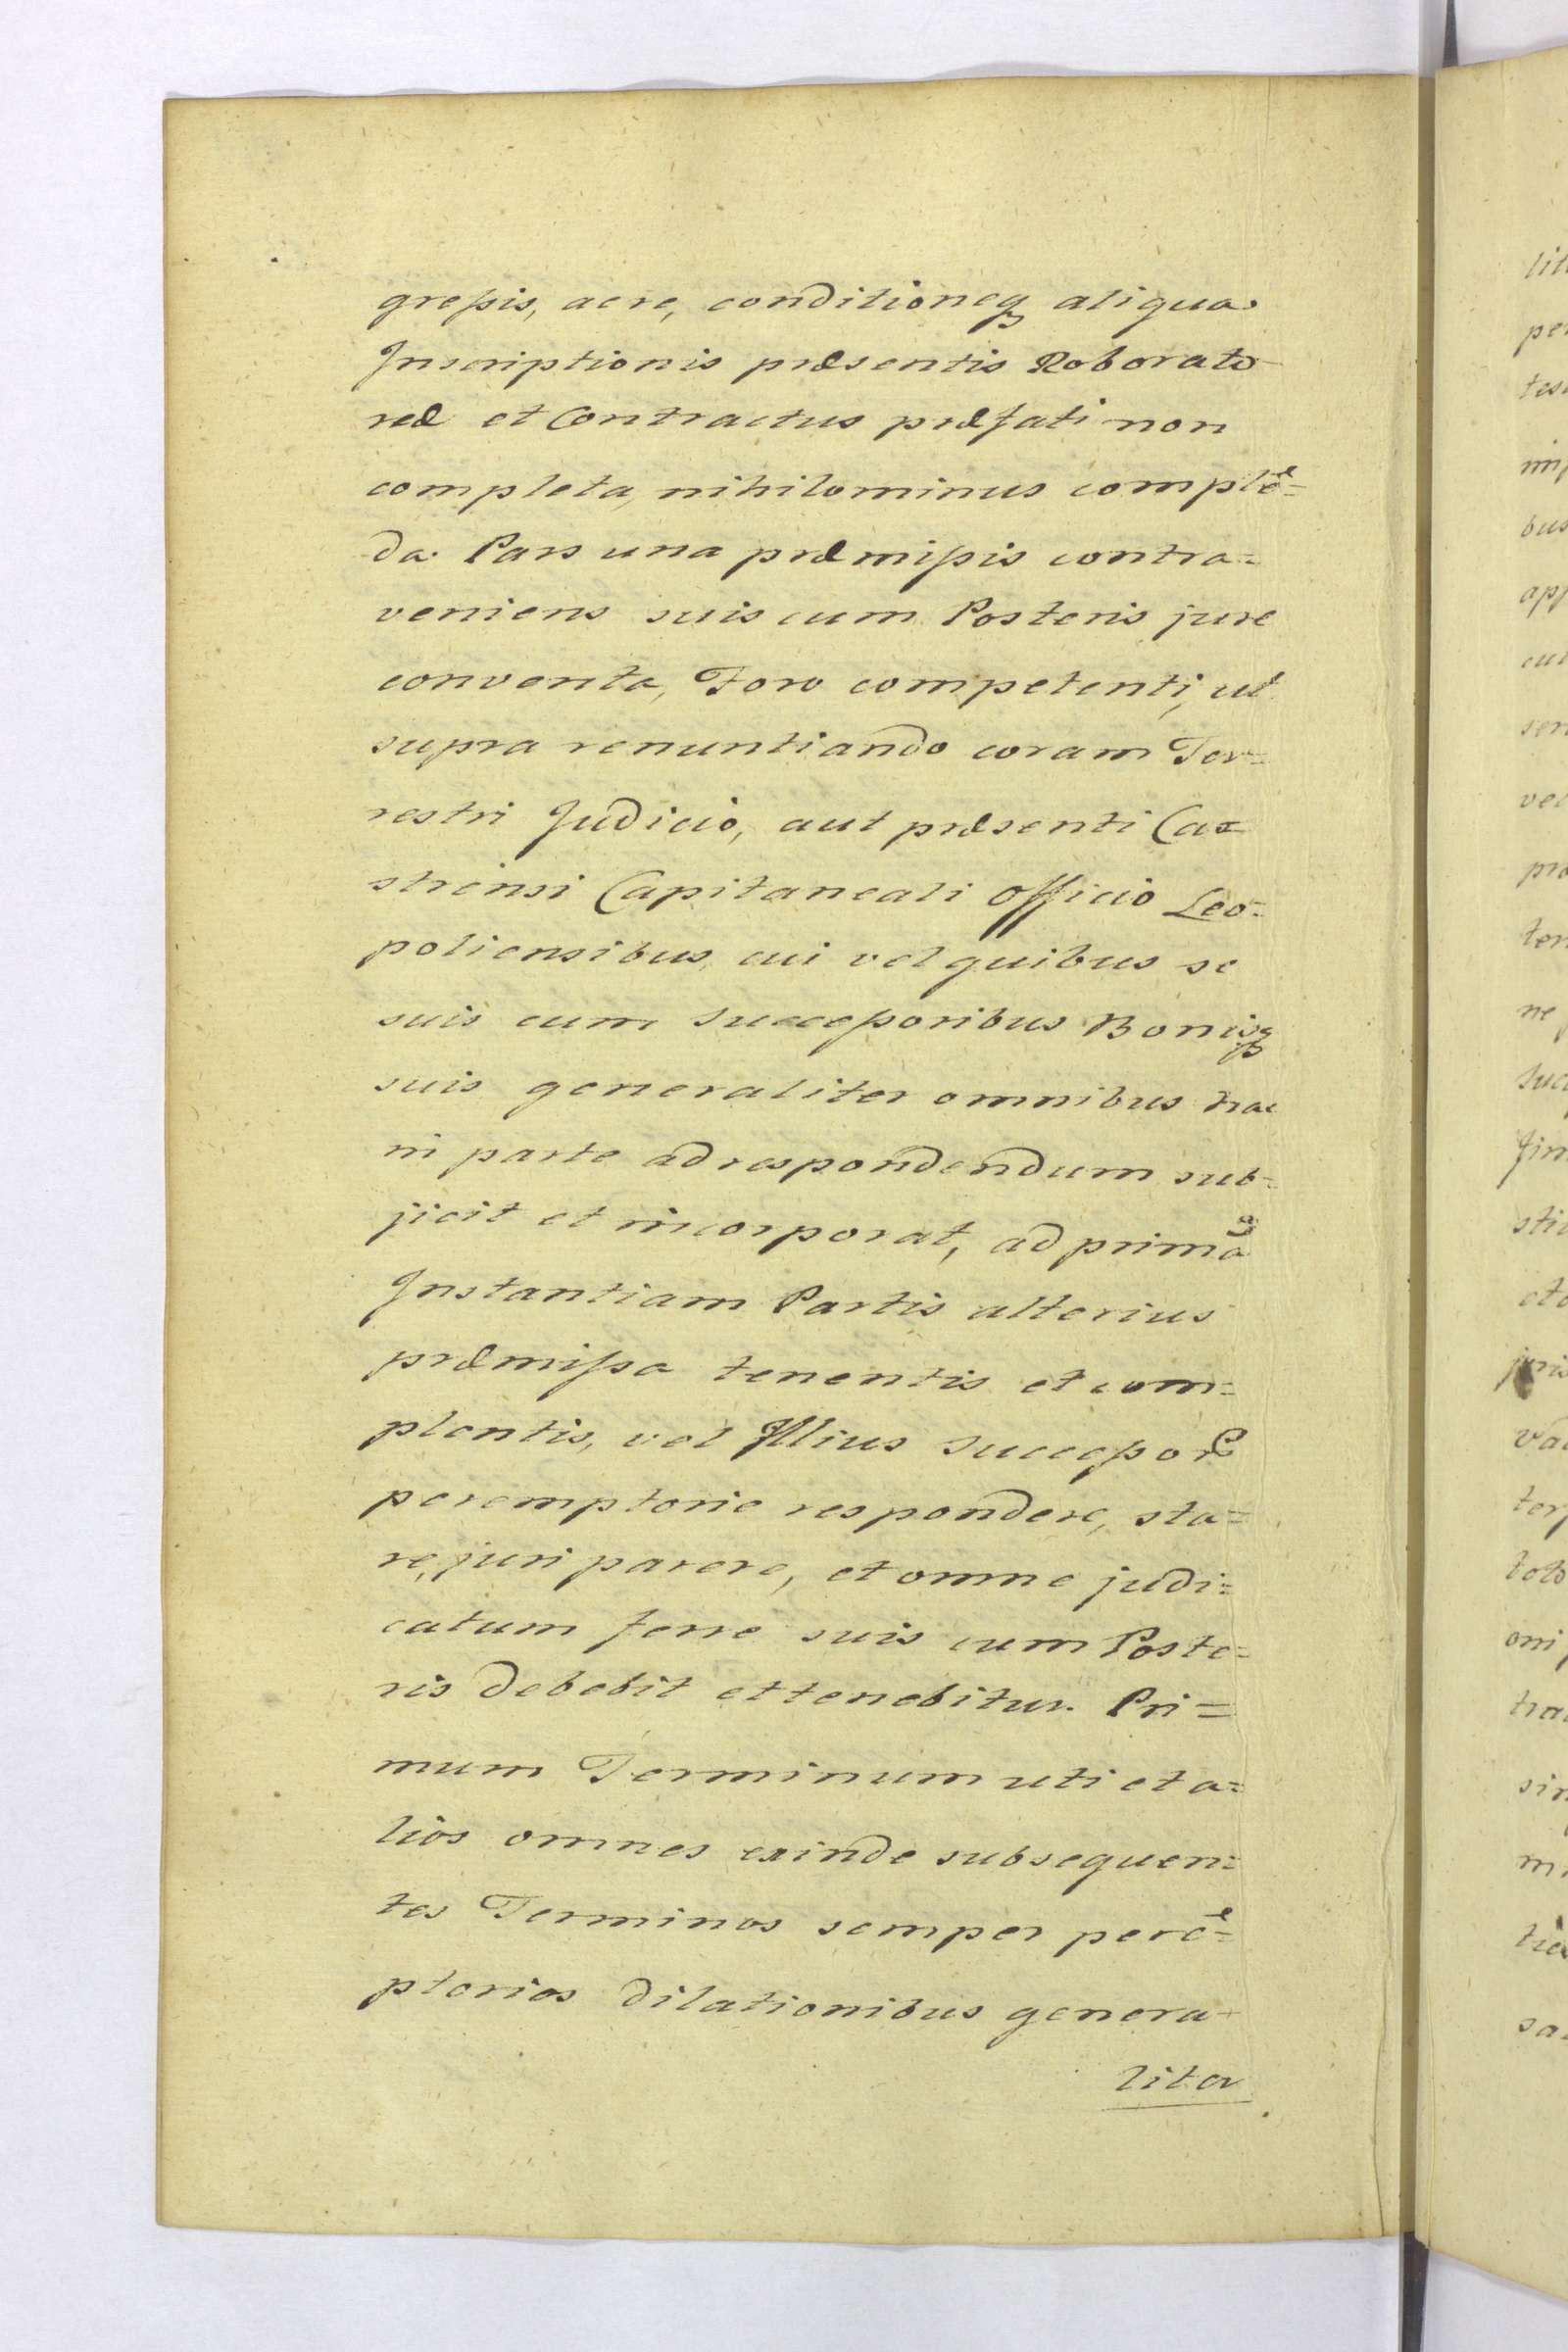 greſsis, aere, conditioneq₃ aliqua
Inscriptionis præsentis Roborato-
ræ et Contractus præfati non
completa, nihilominus complē=
da. Pars una præmiſsis contra=
veniens suis cum Posteris jure
conventa, Foro competenti, ut
supra renuntiando coram Ter=
restri Judicio, aut præsenti Ca=
strensi Capitaneali Officio Leo=
poliensibus, cui vel quibus se
suis cum Succeſsoribus Bonisq₃
suis generaliter omnibus hac
in parte ad respondendum sub=
jicit et incorporat, ad primā
Instantiam Partis alterius
præmiſsa tenentis et com=
plentis, vel Illius Succeſsorē
peremptorie respondere, sta=
re, juri parere, et omne judi=
catum ferre suis cum Poste=
ris debebit et tenebitur. Pri=
mum Terminum uti et a=
lios omnes exinde subsequen=
tes Terminos semper perē=
ptorios dilationibus genera-
liter